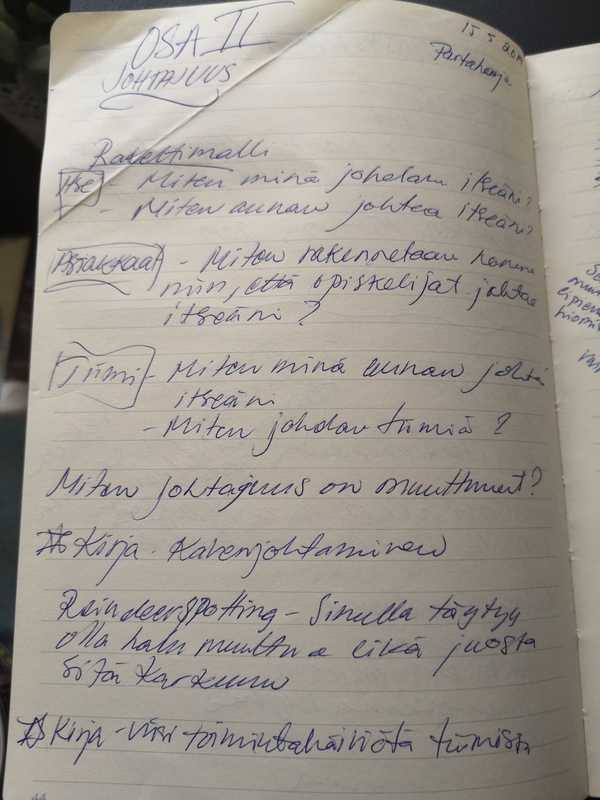 15 5 20
OSA II
JOHTAJUUS
Partaharja
Rakettimalli
Itse - Miten minä johdan itseäni?
- Miten annan johtaa itseäni?
Asiakkaat - Miten rakennetaan
niin, että opiskelijat johtaa
itseäni?
Tiimi - Miten minä annan johtaa
itseäni
- Miten johdan tiimiä?
Miten johtajuus on muuttunut?
Kirja - Karhunjohtaminen
Reindeerspotting - Sinulla täytyy
olla halu muuttua eikä juosta
sitä karkuun
Kirja - viisi toimintahäiriötä tiimissä
44